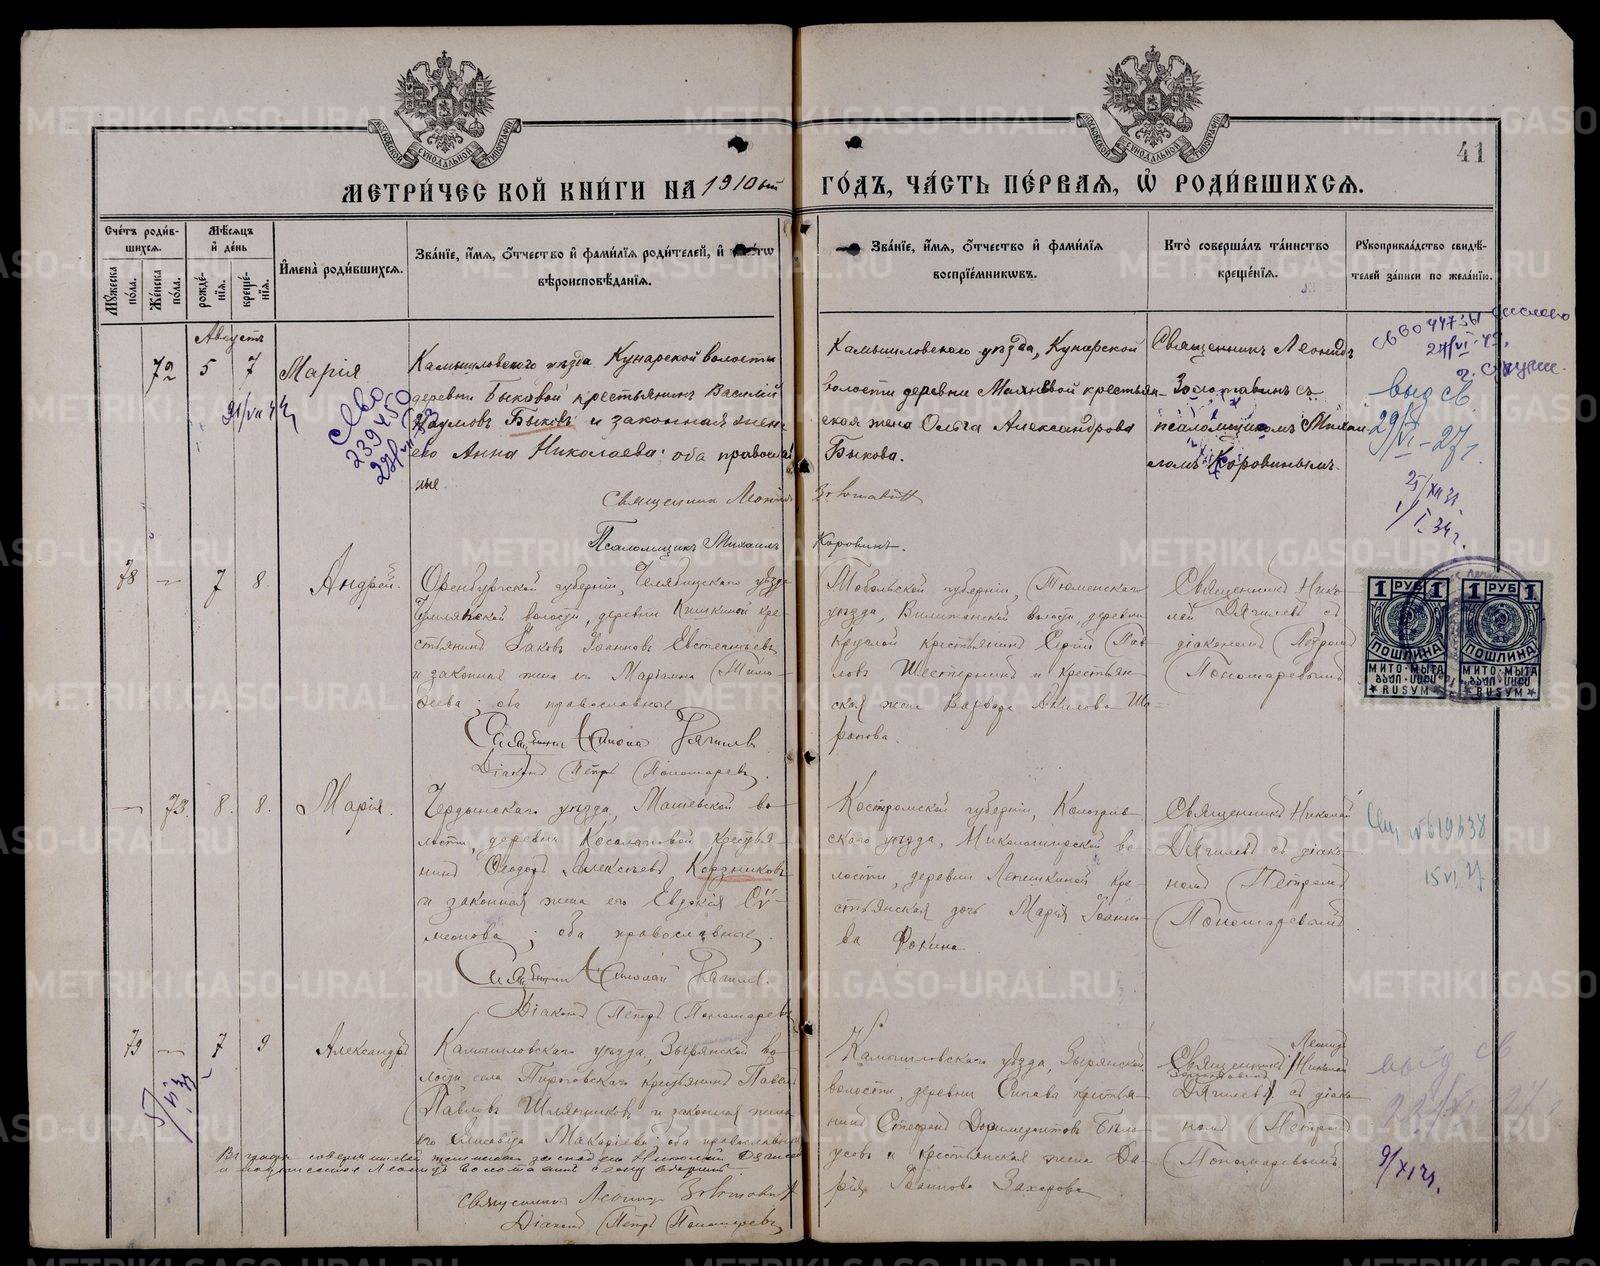 МЕТРИ́ЧЕСКОЙ КНИ́ГИ НА 1910 ый ГО́ДЪ, ЧА́СТЬ ПЕ́РВАЯ, Ѡ҆ РОДИ́ВШИХСЯ.
41
Сче́тъ роди́в-
шихся.
Му́жеска по́ла.
Же́нска по́ла.
Мѣ́сяцъ и҆ де́нь
рожде́-
нїя.
креще́-
нїя.
И҆мена̀ роди́вшихся.
Зва́нїе, и҆́мя, ѻ҆́тчество и҆ фами́лїя роди́телей, и҆
вѣроисповѣ́данїя.
Зва́нїе, и҆́мя, ѻ҆́тчество и҆ фами́лїя
воспрїе́мникѡвъ.
Кто̀ соверша́лъ та́инство
креще́нїя.
Рꙋкоприкла́дство свидѣ́-
телей за́писи по жела́нїю.
Августъ
72 5 7 Марія
Камышловскаго уѣзда Кунарской волости
деревни Быковой крестьянинъ Василій
Наумовъ Быковъ и законная жена
его Анна Николаева: оба православ
ные
Священникъ Леонид
Псаломщикъ Михаилъ
Камышловскаго уѣзда, Кунарской
волости деревни Мальневой крестьян-
ская жена Ольга Александрова
Быкова.
Коровинъ.
Священникъ Леонидъ
Золотавинъ съ
псаломщикомъ Михаи-
ломъ Коровинымъ.
21/VII 44
239450
выд св.
29/VI-27г.
25/XII 31
1/I 34г.
78 — 7 8 Андрей.
Оренбургской губерніи, Челябинскаго уѣзда
Чумлякской волости, деревни Кишкиной кре-
стьянинъ Іаковъ Іоанновъ Евстегнѣевъ
и законная жена его Маріанна Тимо-
феева; оба православные
Священникъ Николай Дягилевъ
Діаконъ Петръ Пономаревъ.
Тобольской губерніи, Тюменскаго
уѣзда, деревни
Круглой крестьянинъ Сергій Пав-
ловъ Шестернинъ и крестьян-
ская жена Варвара Акилова Ша-
рапова.
Священникъ Нико-
лай Дягилевъ съ
діакономъ Петромъ
Пономаревымъ
1 РУБ 1
ПОШЛИНА
МИТО·МЫТА
RUSYM
1 РУБ 1
ПОШЛИНА
МИТО·МЫТА
RUSYM
— 73 8. 8. Марія.
Чердынскаго уѣзда, Машевской во-
лости, деревни Косолаповой крестья-
нинъ Ѳеодоръ Алексѣевъ Кордниковъ
и законная жена его Евдокія Сѵ-
меонова; оба православные.
Священникъ Николай Дягилевъ.
Діаконъ Петръ Пономаревъ
Костромской губерніи, Кологрив-
скаго уѣзда, во-
лости, деревни Лепешкиной кре-
стьянская дочь Марія Іоанно-
ва Фокина
Священникъ Николай
Дягилевъ съ діако-
номъ Петромъ
Пономаревымъ
№619638
79 — 7 9 Александръ
Камышловскаго уѣзда, Зырянской во-
лости, села Пироговскаго крестьянинъ Павелъ
Павловъ Шляпниковъ и законная жена
его Елисавета Макаріева: оба православные
Священникъ Леонидъ Золотавинъ
Діаконъ Петръ Пономаревъ
Камышловскаго уѣзда, Зырянской
волости, деревни крестья-
нинъ Доримедонтовъ Бѣло-
усовъ и крестьянская жена Да-
рія Іоаннова Захарова
Леонидъ
Священникъ Николай
Золотавинъ
Дягилевъ съ діако-
номъ Петромъ
Пономаревымъ
выд св
9/XI 21.
METRIKI.GASO-URAL.RU